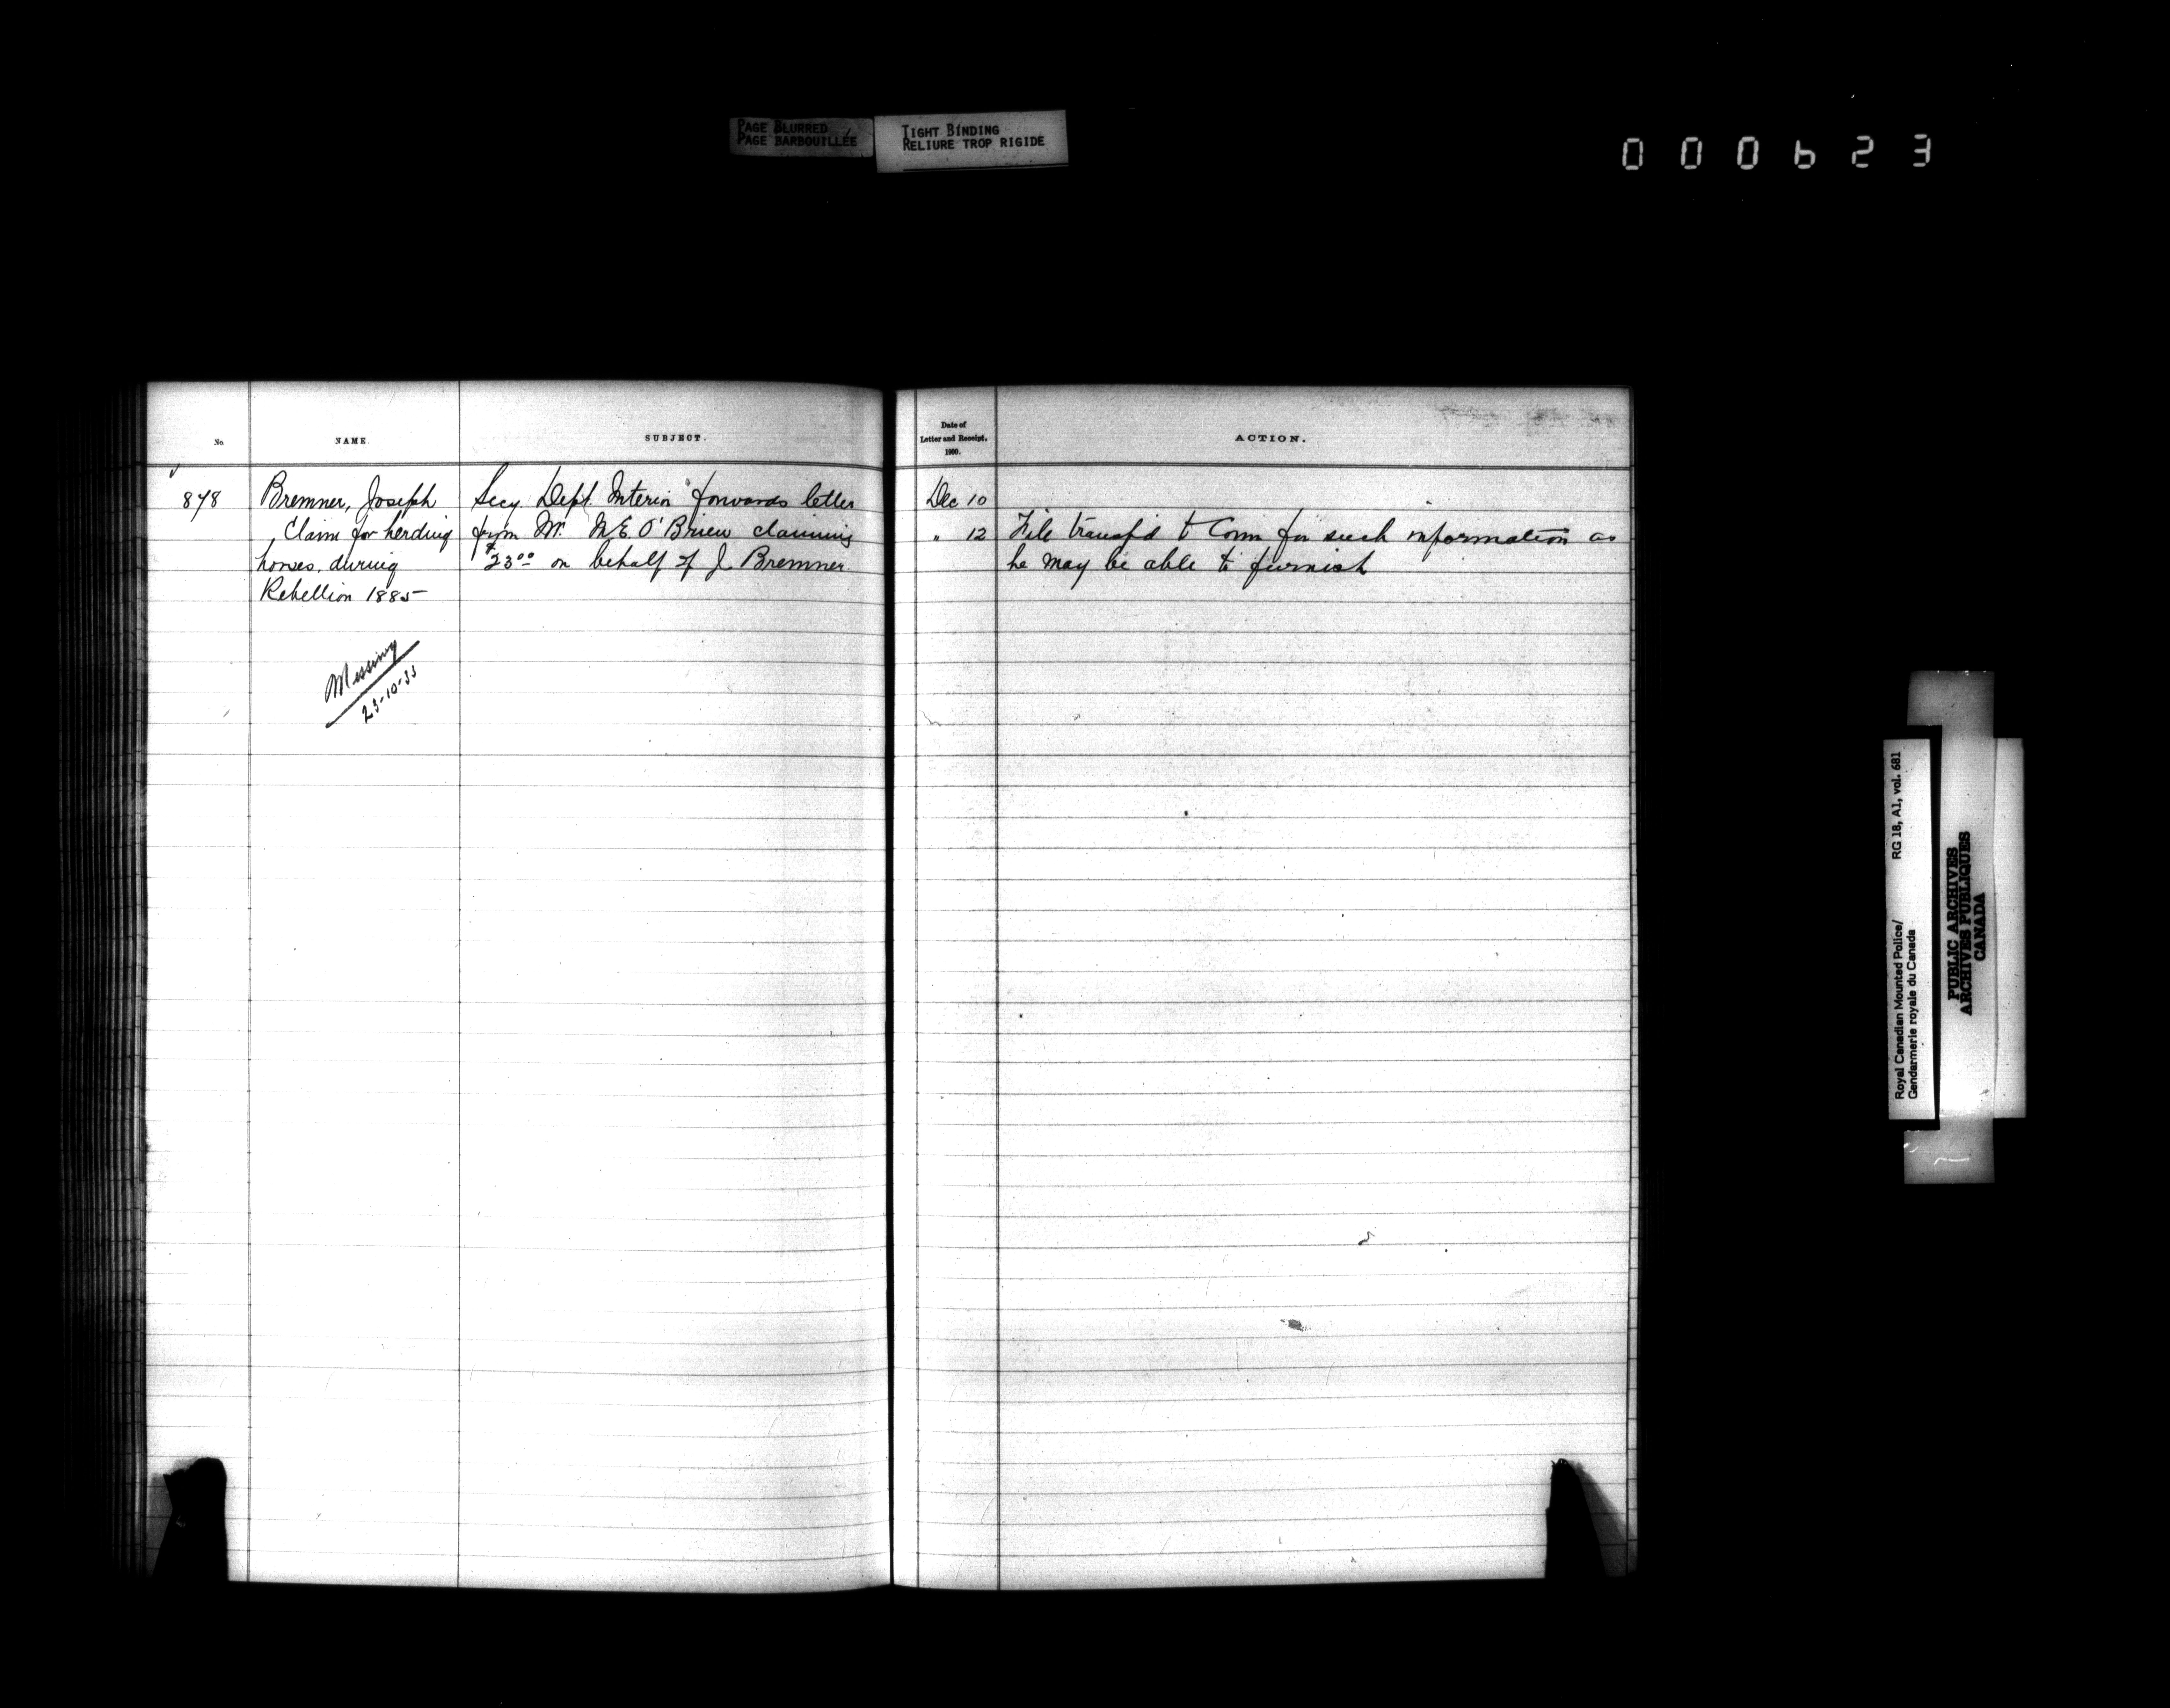 PAGE BLURRED
PAGE BARBOUILLÉE
TIGHT BINDING
RELIURE TROP RIGIDE
000623
No
NAME.
SUBJECT.
Date of
Letter and Receipt.
1900.
ACTION.
878
Bremner, Joseph
Claim for herding
horses, during
Rebellion 1885
Missing
23-10-33
Secy. Dept. Interior forwards letter
from Mr. O'Brien claiming
$23.00 on behalf of J Bremner.
Dec 10
" 12
File transf'd to Com for such information as
he may be able to furnish
Royal Canadian Mounted Police/
Gendarmerie royale du Canada
RG 18, A1, vol. 681
PUBLIC ARCHIVES
ARCHIVES PUBLIQUES
CANADA